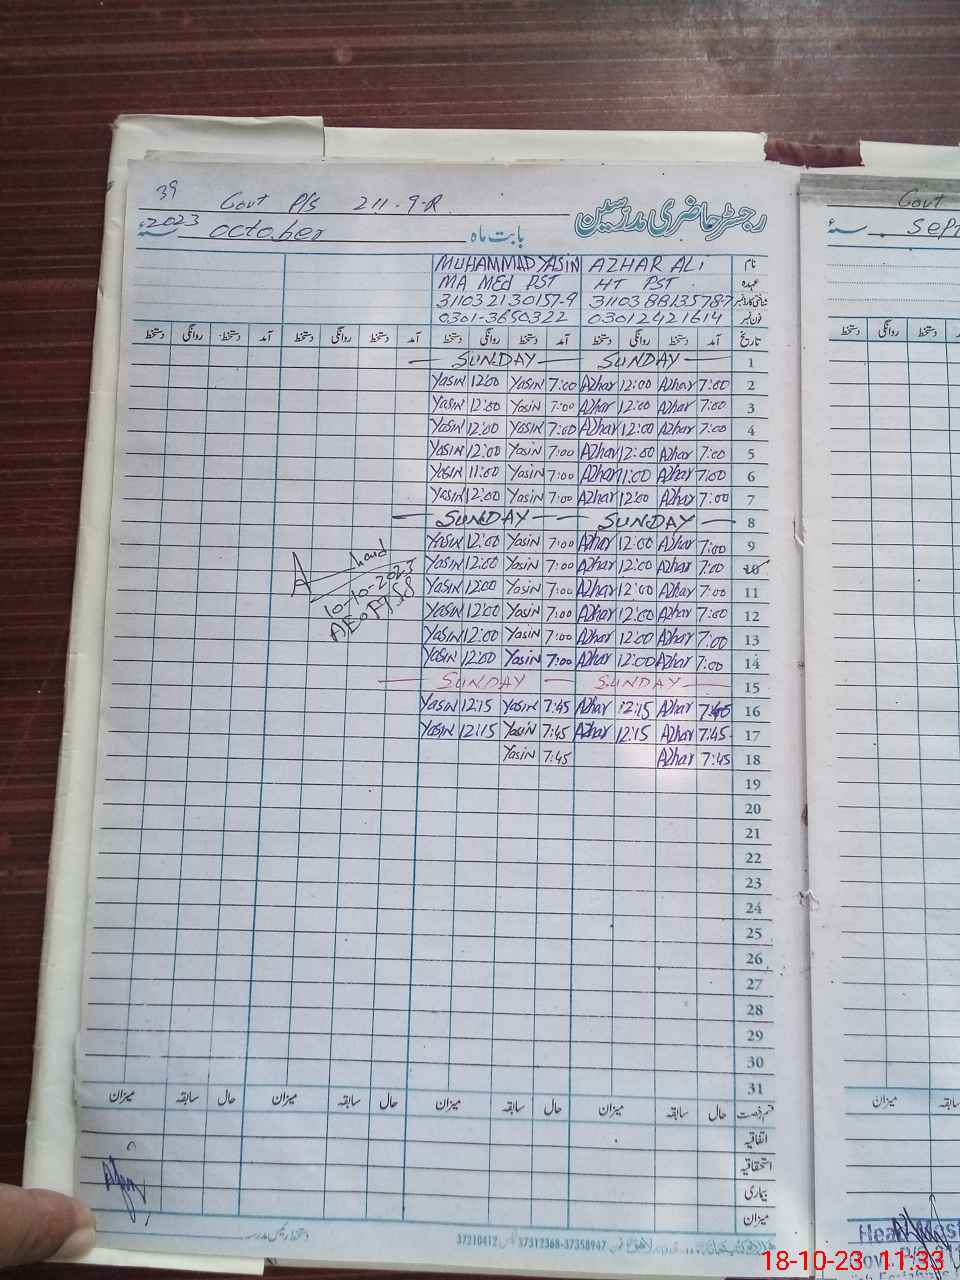 39 Govt P/S 211-9-R
رجسٹر حاضری مدرسین
2023ء October بابت ماہ
Govt
سنۂ Sept
MUHAMMAD YASIN AZHAR ALI نام
MA MEd PST HT PST عہدہ
0301-3650322 03012421614 فون نمبر
دستخط روانگی دستخط آمد دستخط روانگی دستخط آمد دستخط روانگی دستخط آمد دستخط روانگی دستخط آمد تاریخ
SUNDAY SUNDAY 1
Yasin 12:00 Yasin 7:00 Azhar 12:00 Azhar 7:00 2
Yasin 12:00 Yasin 7:00 Azhar 12:00 Azhar 7:00 3
Yasin 12:00 Yasin 7:00 Azhar 12:00 Azhar 7:00 4
Yasin 12:00 Yasin 7:00 Azhar 12:00 Azhar 7:00 5
Yasin 11:00 Yasin 7:00 Azhar 11:00 Azhar 7:00 6
Yasin 12:00 Yasin 7:00 Azhar 12:00 Azhar 7:00 7
SUNDAY SUNDAY 8
Yasin 12:00 Yasin 7:00 Azhar 12:00 Azhar 7:00 9
Yasin 12:00 Yasin 7:00 Azhar 12:00 Azhar 7:00 10
Yasin 12:00 Yasin 7:00 Azhar 12:00 Azhar 7:00 11
Yasin 12:00 Yasin 7:00 Azhar 12:00 Azhar 7:00 12
Yasin 12:00 Yasin 7:00 Azhar 12:00 Azhar 7:00 13
Yasin 12:00 Yasin 7:00 Azhar 12:00 Azhar 7:00 14
10-10-2023
SUNDAY SUNDAY 15
Yasin 12:15 Yasin 7:45 Azhar 12:15 Azhar 7:45 16
Yasin 12:15 Yasin 7:45 Azhar 12:15 Azhar 7:45 17
Yasin 7:45 Azhar 7:45 18
19
20
21
22
23
24
25
26
27
28
29
30
31
میزان سابقہ حال میزان سابقہ حال میزان سابقہ حال میزان سابقہ حال قسم رخصت
اتفاقیہ
استحقاقیہ
بیماری
میزان
دستخط رئیس مدرسہ
37210412 37312368-37358947
18-10-23 11:33